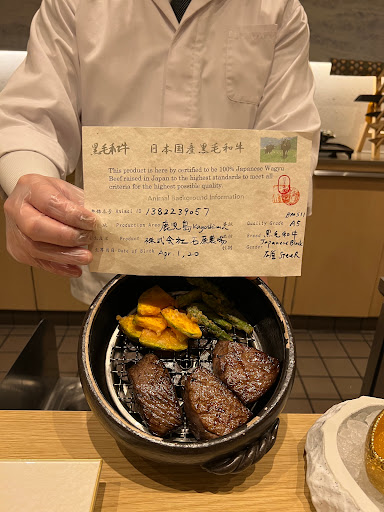 黒毛和牛 日本国産黒毛和牛
This product is here by certified to be 100% Japanese Wagyu
Beef raised in Japan to the highest standards to meet all
criteria for the highest possible quality.
Animal Background Information
Animal ID 1382239057
Production Area 鹿児島 Kagoshima
Quality Grade A5
BMS 11
Producer 株式会社
Breed 黒毛和牛 Japanese Black
Date of Birth Apr. 1, 20
Gender Steer